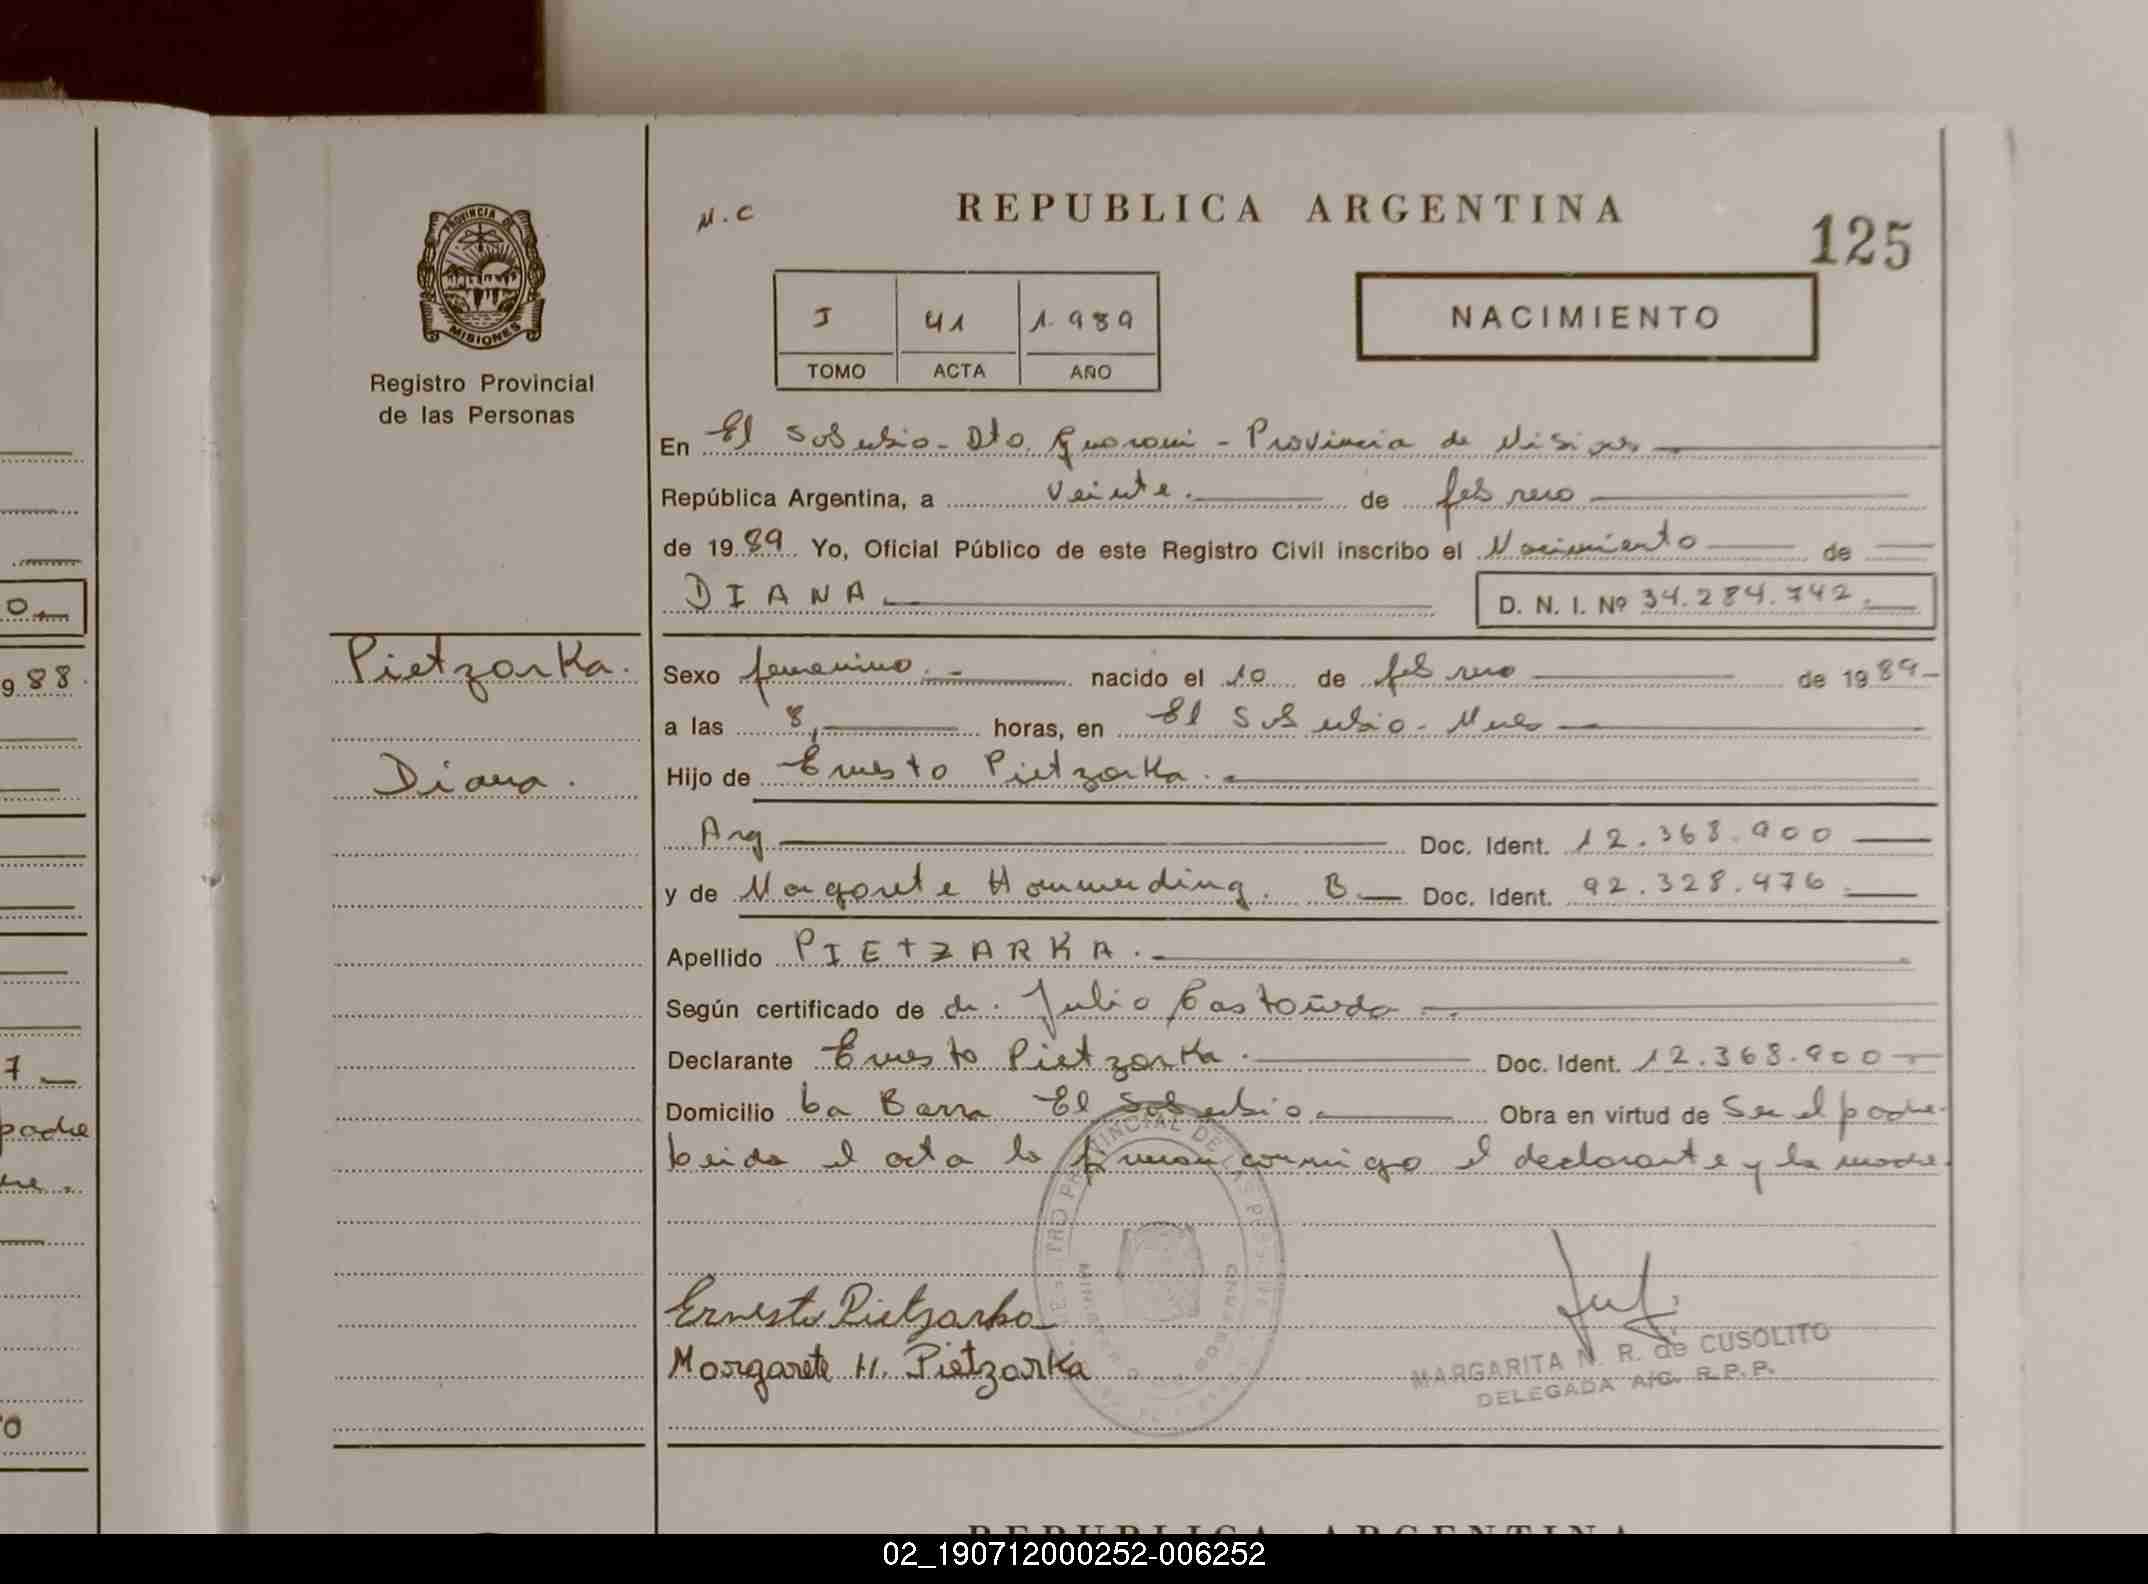 PROVINCIA DE
MISIONES
Registro Provincial
de las Personas
Pietzarka.
Diana.
M.C
REPUBLICA ARGENTINA
125
I 41 1.989
TOMO ACTA AÑO
NACIMIENTO
En El Soberbio - Dto. Guarani - Provincia de Misiones
República Argentina, a veinte. de febrero
de 1989 Yo, Oficial Público de este Registro Civil inscribo el Nacimiento de
DIANA
D. N. I. Nº 34.284.742.
Sexo femenino. nacido el 10 de febrero de 1989
a las 8, horas, en El Soberbio - Mnes
Hijo de Ernesto Pietzarka.
Arg Doc. Ident. 12.368.900
y de Margarete Hammerding. B. Doc. Ident. 92.328.476.
Apellido PIETZARKA.
Según certificado de dr. Julio Castañeda
Declarante Ernesto Pietzarka. Doc. Ident. 12.368.900
Domicilio La Barra El Soberbio Obra en virtud de Ser el padre.
Leida el acta la firman conmigo el declarante y la madre.
Ernesto Pietzarka
Margarete H. Pietzarka
MARGARITA N. R. de CUSOLITO
DELEGADA A/C. R.P.P.
REPUBLICA ARGENTINA
988
7
padre
02_190712000252-006252